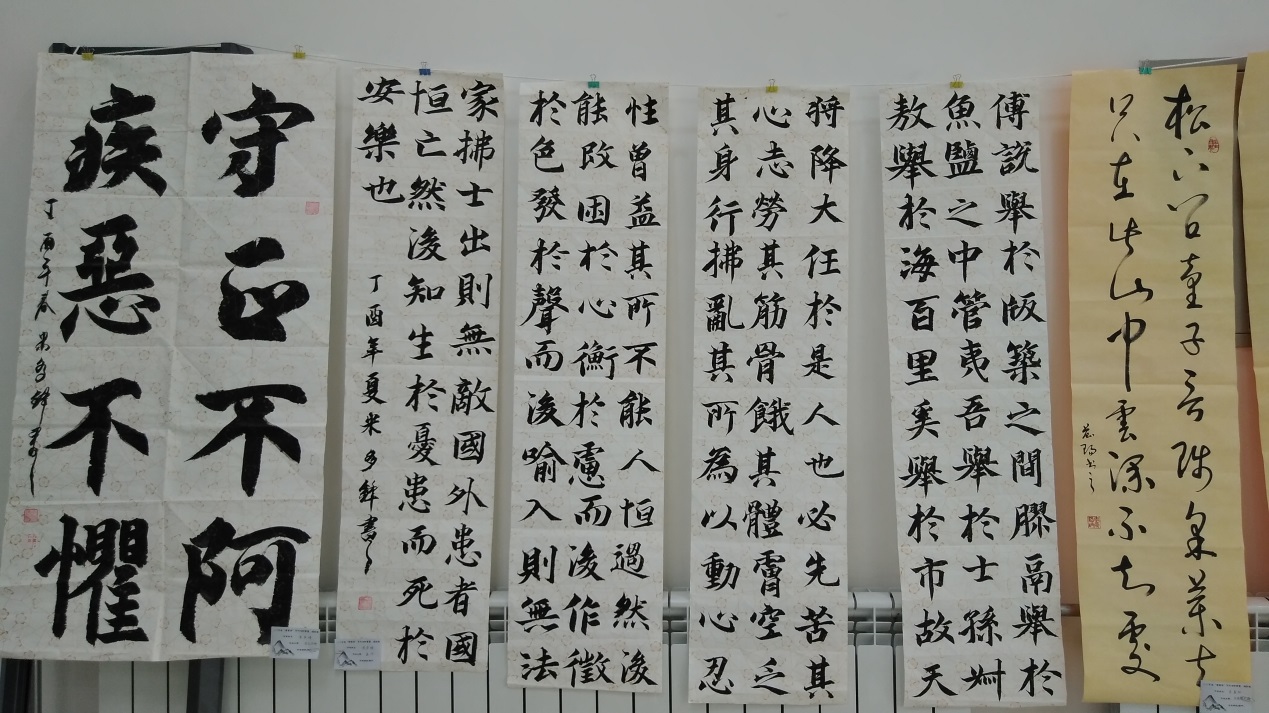 松下問童子言師采藥去
只在此山中雲深不知處
傅說舉於版築之間膠鬲舉於
魚鹽之中管夷吾舉於士孫叔
敖舉於海百里奚舉於市故天
將降大任於是人也必先苦其
心志勞其筋骨餓其體膚空乏
其身行拂亂其所為以動心忍
性曾益其所不能人恒過然後
能改困於心衡於慮而後作徵
於色發於聲而後喻入則無法
家拂士出則無敵國外患者國
恒亡然後知生於憂患而死於
安樂也
丁酉年夏米多鋒書
守正不阿
疾惡不懼
丁酉年夏米多鋒書